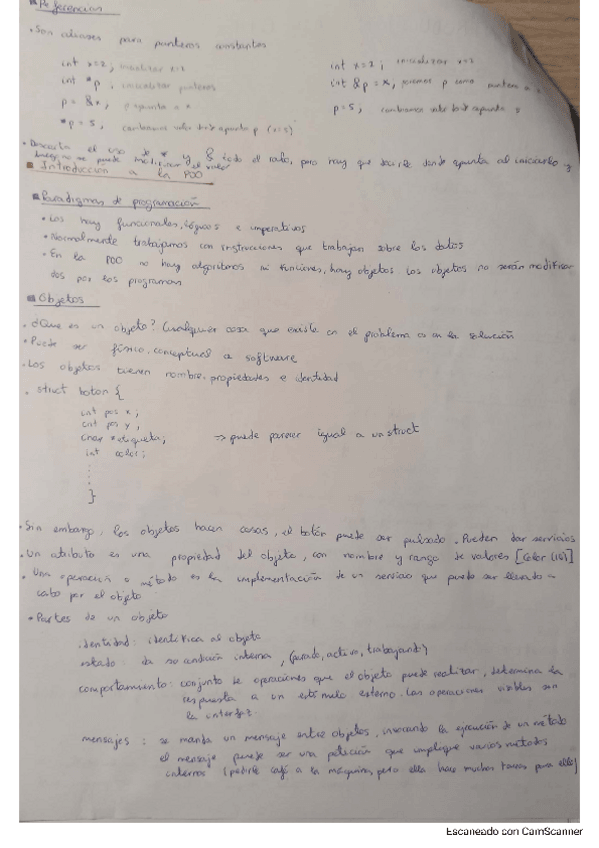 Referencias
• Son aliases para punteros constantes
int x=2; inicializar x=2
int *p; inicializar punteros
p = &x; p apunta a x
*p = 5; cambiamos valor donde apunta p (x=5)
int x=2; inicializar x=2
int &p = x; ponemos p como puntero a x
p=5; cambiamos valor donde apunta
• Descarta el uso de * y & todo el rato, pero hay que decirle donde apunta al iniciarlo y
luego no se puede modificar el valor
Introducción a la POO
Paradigmas de programación
• Los hay funcionales, lógicos e imperativos
• Normalmente trabajamos con instrucciones que trabajan sobre los datos
• En la POO no hay algoritmos ni funciones, hay objetos. Los objetos no serán modifica
dos por los programas
Objetos
• ¿Que es un objeto? Cualquier cosa que existe en el problema o en la solución
• Puede ser físico, conceptual o software
• Los objetos tienen nombre, propiedades e identidad
• struct boton {
int pos x;
int pos y;
char *etiqueta; => puede parecer igual a un struct
int color;
}
• Sin embargo, los objetos hacen cosas, el botón puede ser pulsado. Pueden dar servicios
• Un atributo es una propiedad del objeto, con nombre y rango de valores [Color (16)]
• Una operación o método es la implementación de un servicio que puede ser llevado a
cabo por el objeto
• Partes de un objeto
identidad: identifica al objeto
estado: da su condición interna, (parado, activo, trabajando)
comportamiento: conjunto de operaciones que el objeto puede realizar, determina la
respuesta a un estímulo externo. Las operaciones visibles son
la interfaz.
mensajes: se manda un mensaje entre objetos, invocando la ejecución de un método
el mensaje puede ser una petición que implique varios métodos
internos (pedirle café a la máquina, pero ella hace muchas tareas para ello)
Escaneado con CamScanner